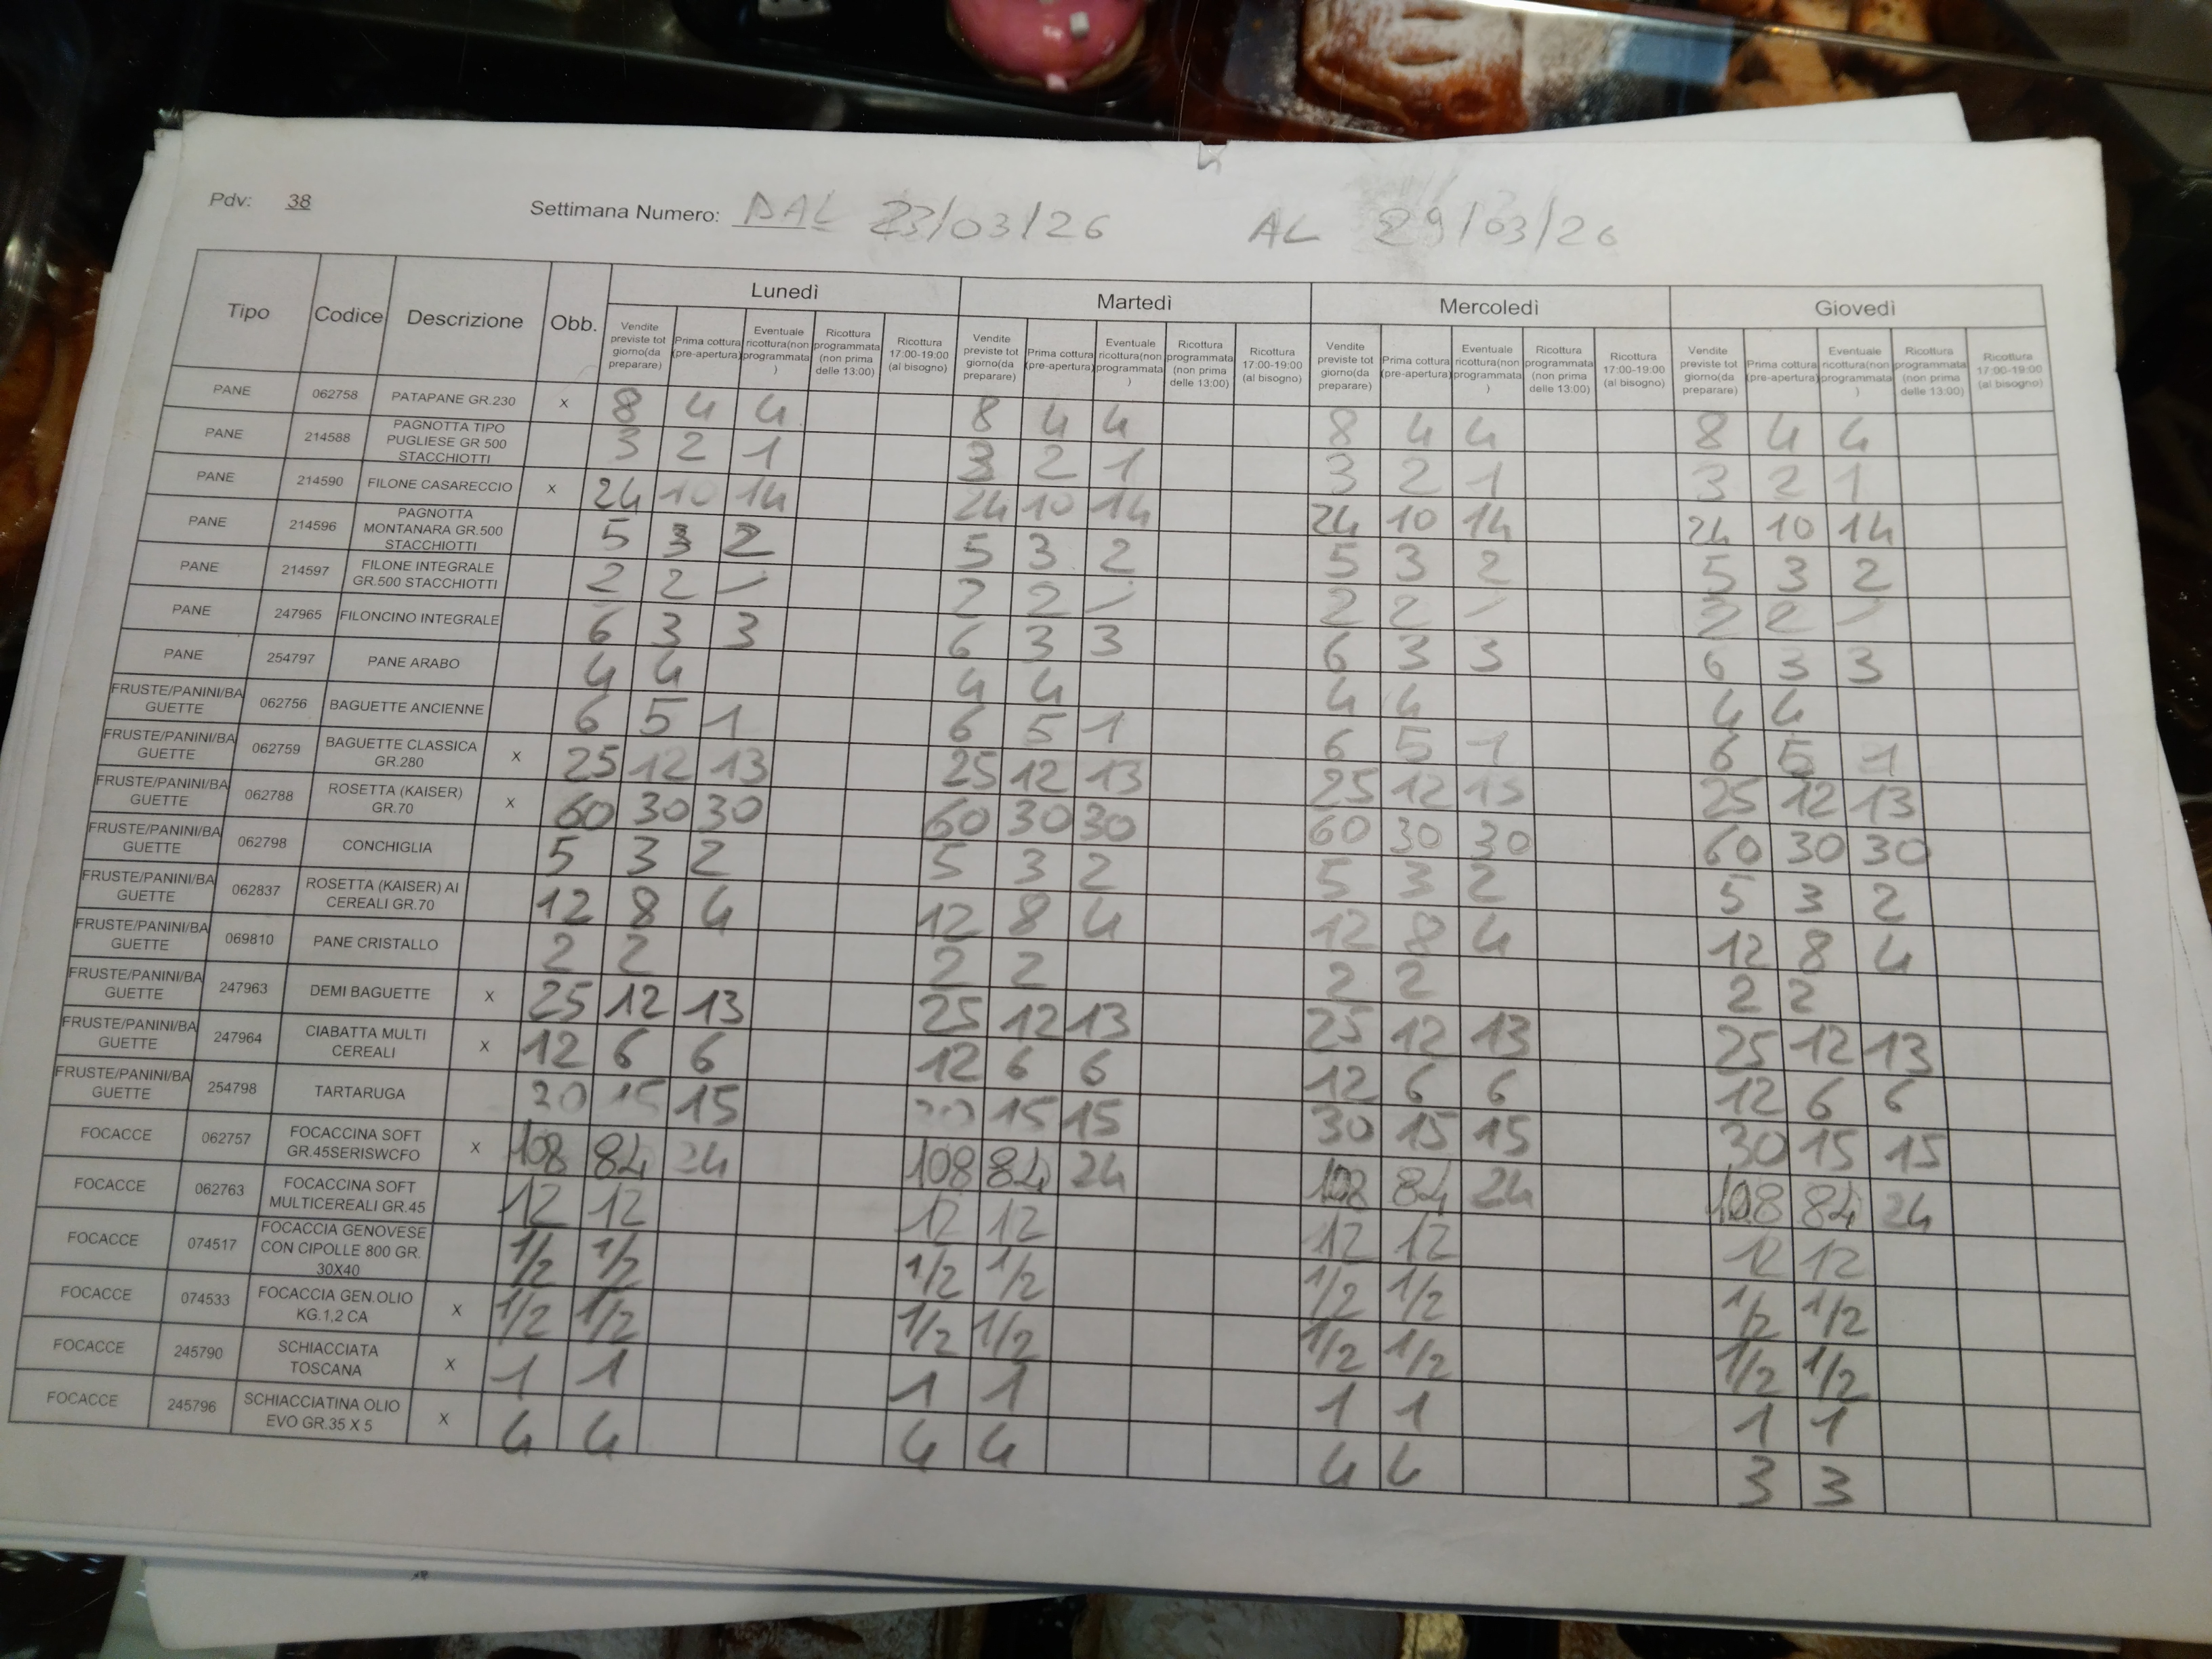 Pdv: 38 Settimana Numero: DAL 23/03/26 AL 29/03/26
Tipo Codice Descrizione Obb. Lunedì Martedì Mercoledì Giovedì
Vendite previste tot giorno(da preparare) Prima cottura (pre-apertura) Eventuale ricottura(non programmata) Ricottura programmata (non prima delle 13:00) Ricottura 17:00-19:00 (al bisogno) Vendite previste tot giorno(da preparare) Prima cottura (pre-apertura) Eventuale ricottura(non programmata) Ricottura programmata (non prima delle 13:00) Ricottura 17:00-19:00 (al bisogno) Vendite previste tot giorno(da preparare) Prima cottura (pre-apertura) Eventuale ricottura(non programmata) Ricottura programmata (non prima delle 13:00) Ricottura 17:00-19:00 (al bisogno) Vendite previste tot giorno(da preparare) Prima cottura (pre-apertura) Eventuale ricottura(non programmata) Ricottura programmata (non prima delle 13:00) Ricottura 17:00-19:00 (al bisogno)
PANE 062758 PATAPANE GR.230 x 8 4 4 8 4 4 8 4 4 8 4 4
PANE 214588 PAGNOTTA TIPO PUGLIESE GR 500 STACCHIOTTI 3 2 1 3 2 1 3 2 1 3 2 1
PANE 214590 FILONE CASARECCIO x 24 10 14 24 10 14 24 10 14 24 10 14
PANE 214596 PAGNOTTA MONTANARA GR.500 STACCHIOTTI 5 3 2 5 3 2 5 3 2 5 3 2
PANE 214597 FILONE INTEGRALE GR.500 STACCHIOTTI 2 2 / 2 2 / 2 2 / 2 2 /
PANE 247965 FILONCINO INTEGRALE 6 3 3 6 3 3 6 3 3 6 3 3
PANE 254797 PANE ARABO 4 4 4 4 4 4 4 4
FRUSTE/PANINI/BAGUETTE 062756 BAGUETTE ANCIENNE 6 5 1 6 5 1 6 5 1 6 5 1
FRUSTE/PANINI/BAGUETTE 062759 BAGUETTE CLASSICA GR.280 x 25 12 13 25 12 13 25 12 13 25 12 13
FRUSTE/PANINI/BAGUETTE 062788 ROSETTA (KAISER) GR.70 x 60 30 30 60 30 30 60 30 30 60 30 30
FRUSTE/PANINI/BAGUETTE 062798 CONCHIGLIA 5 3 2 5 3 2 5 3 2 5 3 2
FRUSTE/PANINI/BAGUETTE 062837 ROSETTA (KAISER) AI CEREALI GR.70 12 8 4 12 8 4 12 8 4 12 8 4
FRUSTE/PANINI/BAGUETTE 069810 PANE CRISTALLO 2 2 2 2 2 2 2 2
FRUSTE/PANINI/BAGUETTE 247963 DEMI BAGUETTE x 25 12 13 25 12 13 25 12 13 25 12 13
FRUSTE/PANINI/BAGUETTE 247964 CIABATTA MULTI CEREALI x 12 6 6 12 6 6 12 6 6 12 6 6
FRUSTE/PANINI/BAGUETTE 254798 TARTARUGA 30 15 15 30 15 15 30 15 15 30 15 15
FOCACCE 062757 FOCACCINA SOFT GR.45SERISWCFO x 108 84 24 108 84 24 108 84 24 108 84 24
FOCACCE 062763 FOCACCINA SOFT MULTICEREALI GR.45 12 12 12 12 12 12 12 12
FOCACCE 074517 FOCACCIA GENOVESE CON CIPOLLE 800 GR. 30X40 1/2 1/2 1/2 1/2 1/2 1/2 1/2 1/2
FOCACCE 074533 FOCACCIA GEN.OLIO KG.1,2 CA x 1/2 1/2 1/2 1/2 1/2 1/2 1/2 1/2
FOCACCE 245790 SCHIACCIATA TOSCANA x 1 1 1 1 1 1 1 1
FOCACCE 245796 SCHIACCIATINA OLIO EVO GR.35 X 5 x 4 4 4 4 4 4 3 3